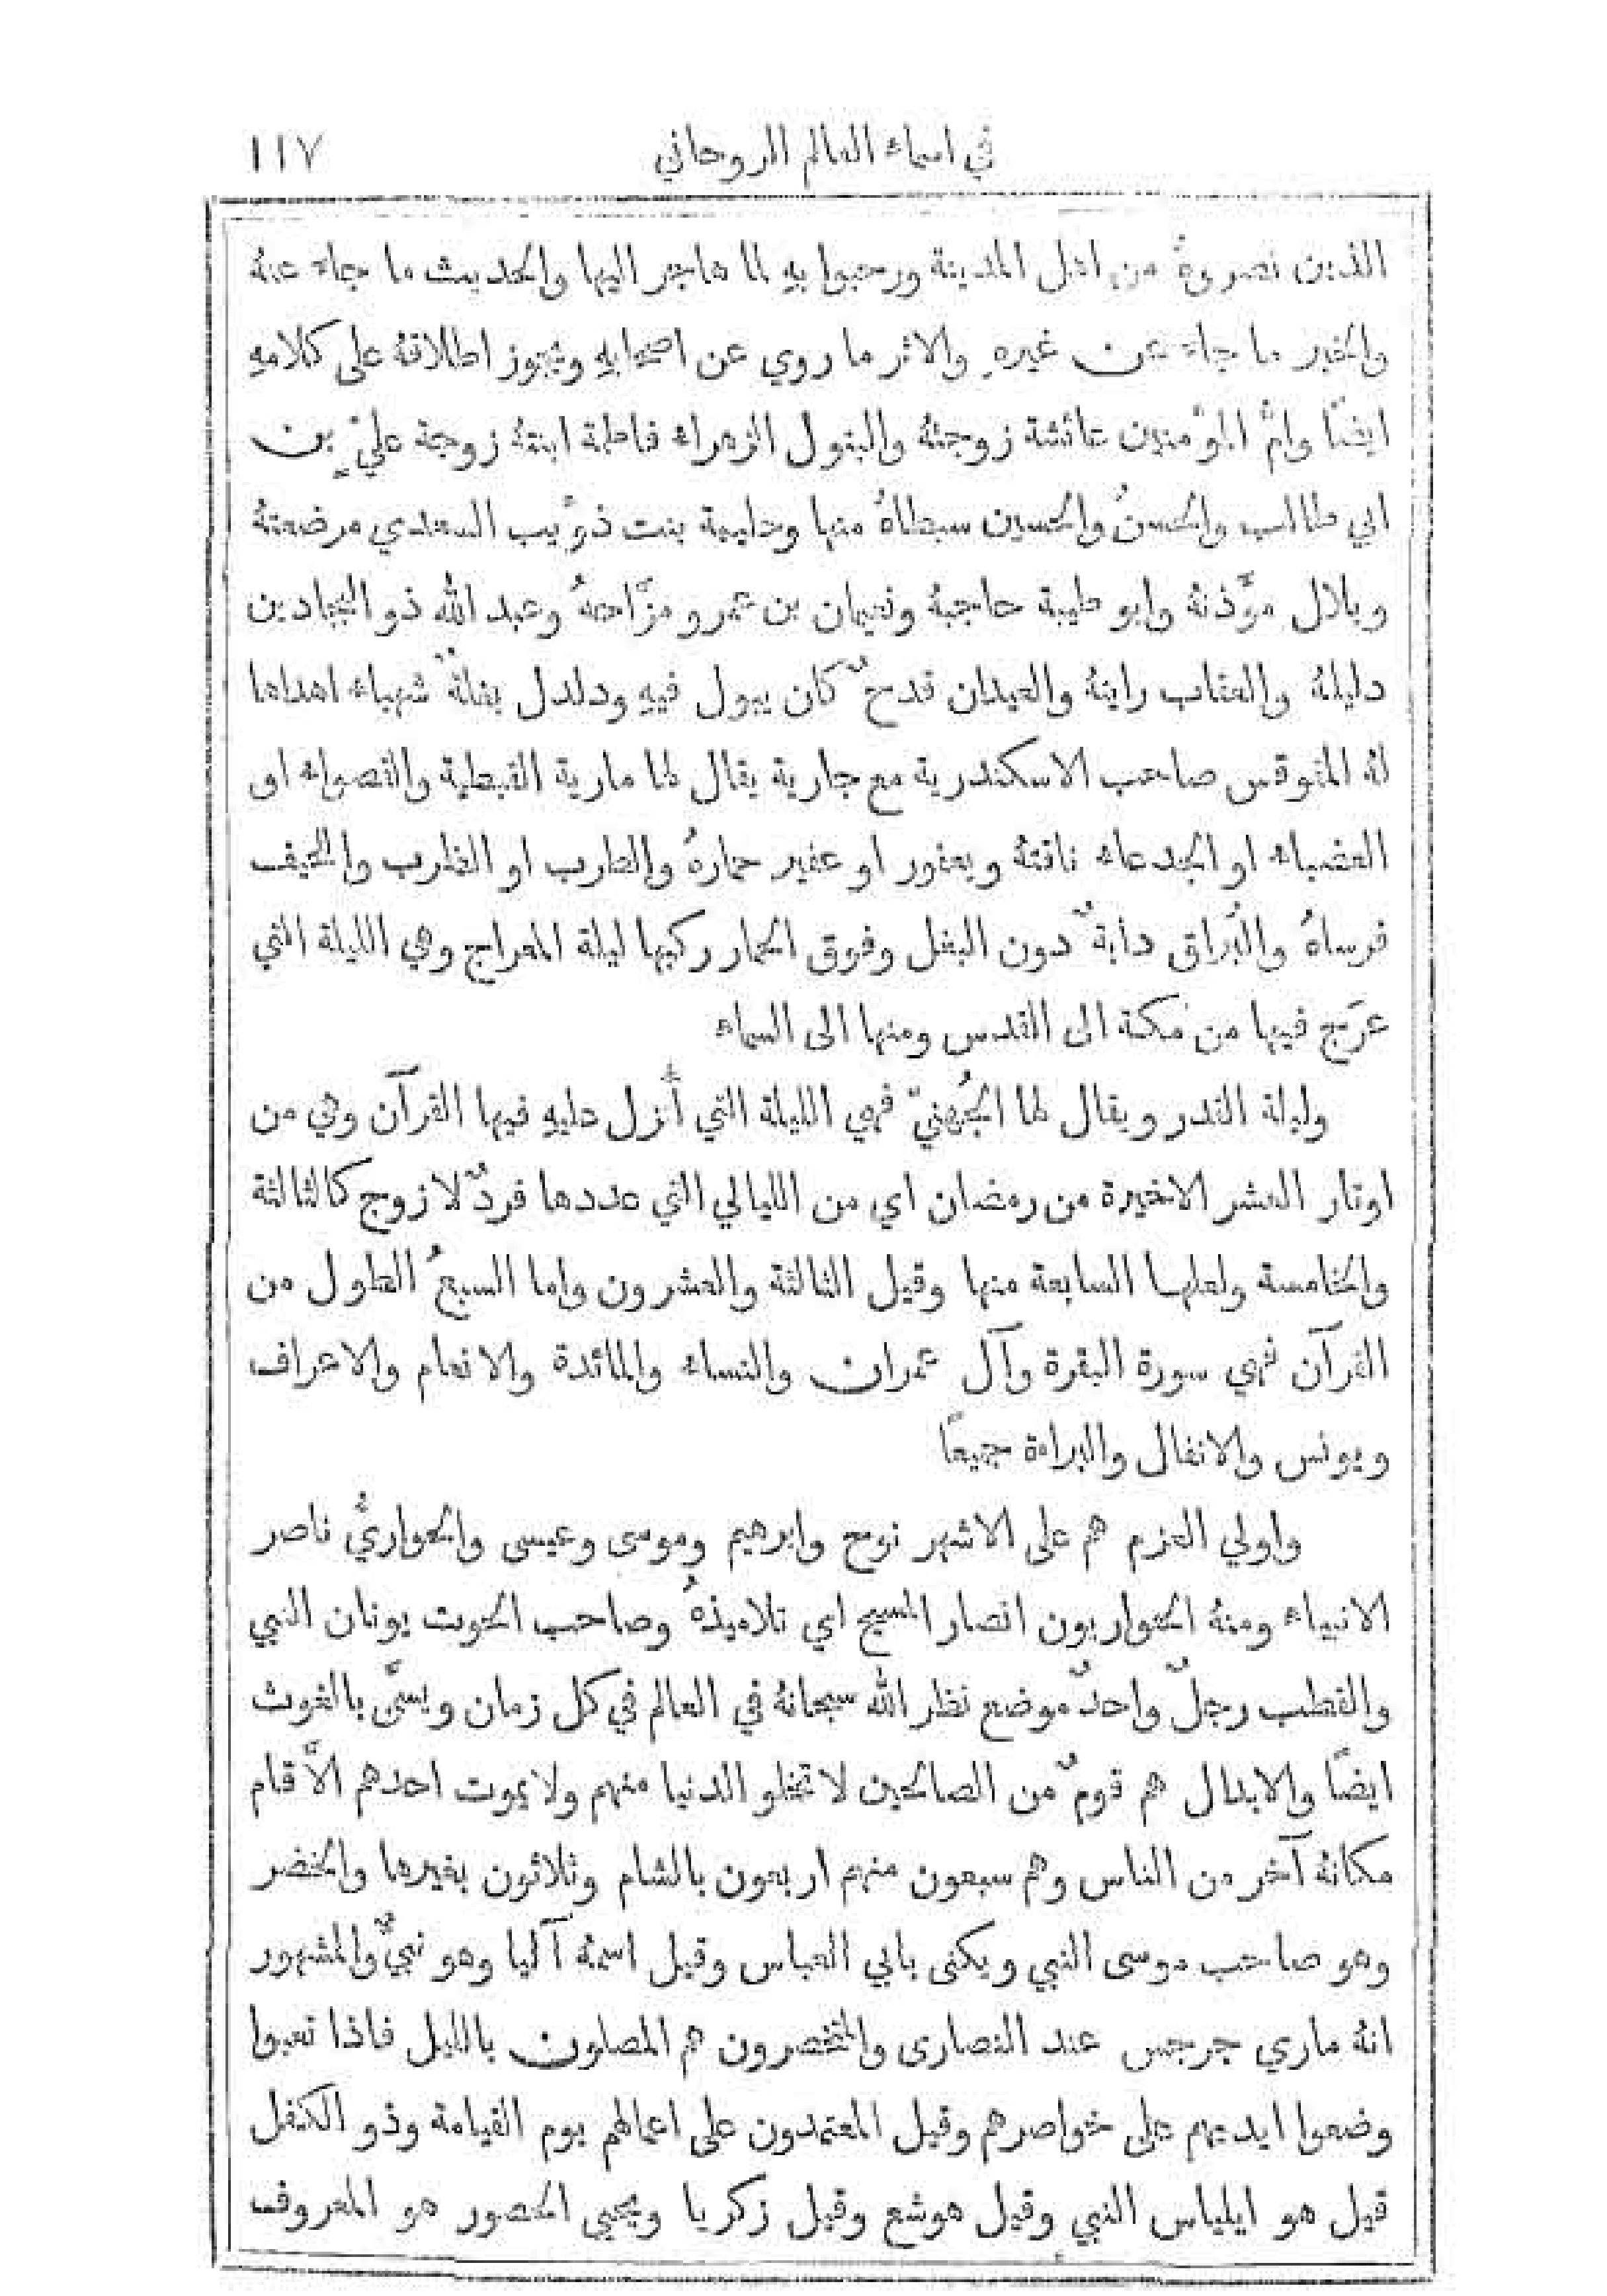 في اسماء العالم الروحاني ١١٧
الذين نصروهُ من اهل المدينة ورحبوا بهِ لما هاجر اليها والحديث ما جاء عنهُ
والخبر ما جاء عن غيرهِ والاثر ما روي عن اصحابهِ ويجوز اطلاقهُ على كلامهِ
ايضًا وامُّ المؤْمنين عائشة زوجتهُ والبتول الزهراء فاطمة ابنتهُ زوجة عليّ بن
ابي طالب والحسنُ والحسين سبطاهُ منها وحليمة بنت ذوَّيب السعدي مرضعتهُ
وبلال مؤَّذنهُ وابو طيبة حاجبهُ ونعيمان بن عمرو مزَّاحهُ وعبد الله ذو البجادين
دليلهُ والعقاب رايتهُ والعيدان قدحٌ كان يبول فيهِ ودلدل بغلةٌ شهباء اهداها
لهُ المقوقس صاحب الاسكندرية مع جارية يقال لها مارية القبطية والقصواء او
العضباء او الجدعاء ناقتهُ ويعفور او عفير حمارهُ والطرب او الظرب واللحيف
فرساهُ والبُراق دابةٌ دون البغل وفوق الحمار ركبها ليلة المعراج وهي الليلة التي
عرَج فيها من مكة الى القدس ومنها الى السماء
وليلة القدر ويقال لها الجُهنيّ فهي الليلة التي أُنزل عليهِ فيها القرآن وهي من
اوتار العشر الاخيرة من رمضان اي من الليالي التي عددها فردٌ لا زوج كالثالثة
والخامسة ولعلها السابعة منها وقيل الثالثة والعشرون واما السبعُ الطول من
القرآن فهي سورة البقرة وآل عمران والنساء والمائدة والانعام والاعراف
ويونس والانفال والبراءة جميعًا
واولي العزم هم على الاشهر نوح وابرهيم وموسى وعيسى والحواريُّ ناصر
الانبياء ومنهُ الحواريون انصار المسيح اي تلاميذهُ وصاحب الحوت يونان النبي
والقطب رجلٌ واحدٌ موضع نظر الله سبحانهُ في العالم في كل زمان ويسمَّى بالغوث
ايضًا والابدال هم قومٌ من الصالحين لا تخلو الدنيا منهم ولا يموت احدهم الَّا قام
مكانهُ آخر من الناس وهم سبعون منهم اربعون بالشام وثلاثون بغيرها والخضر
وهو صاحب موسى النبي ويكنى بابي العباس وقيل اسمهُ آليا وهو نبيٌّ والمشهور
انهُ ماري جرجس عند النصارى والمتخصرون هم المصلون بالليل فاذا تعبوا
وضعوا ايديهم على خواصرهم وقيل المعتمدون على اعمالهم يوم القيامة وذو الكفل
قيل هو ايلياس النبي وقيل هوشع وقيل زكريا ويحيى الحصور هو المعروف